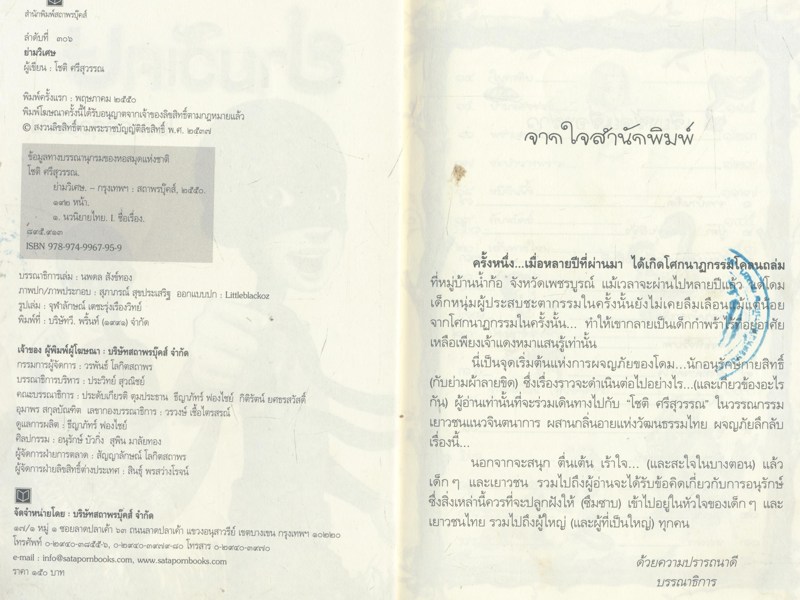 สำนักพิมพ์สถาพรบุ๊คส์
ลำดับที่ ๓๐๖
ย่ามวิเศษ
ผู้เขียน : โชติ ศรีสุวรรณ
พิมพ์ครั้งแรก : พฤษภาคม ๒๕๕๐
พิมพ์โฆษณาครั้งนี้ได้รับอนุญาตจากเจ้าของลิขสิทธิ์ตามกฎหมายแล้ว
© สงวนลิขสิทธิ์ตามพระราชบัญญัติลิขสิทธิ์ พ.ศ. ๒๕๓๗
ข้อมูลทางบรรณานุกรมของหอสมุดแห่งชาติ
โชติ ศรีสุวรรณ.
ย่ามวิเศษ. – กรุงเทพฯ : สถาพรบุ๊คส์, ๒๕๕๐.
๑๙๒ หน้า.
๑. นวนิยายไทย. I. ชื่อเรื่อง.
๘๙๕.๙๑๓
ISBN 978-974-9967-95-9
บรรณาธิการเล่ม : นพดล สังข์ทอง
ภาพปก/ภาพประกอบ : สุภาภรณ์ สุขประเสริฐ ออกแบบปก : Littleblackoz
รูปเล่ม : จุฬาลักษณ์ เตชะรุ่งเรืองวิทย์
พิมพ์ที่ : บริษัทวี. พริ้นท์ (๑๙๙๑) จำกัด
เจ้าของ ผู้พิมพ์ผู้โฆษณา : บริษัทสถาพรบุ๊คส์ จำกัด
กรรมการผู้จัดการ : วรพันธ์ โลกิตสถาพร
บรรณาธิการบริหาร : ประวิทย์ สุวณิชย์
คณะบรรณาธิการ : ประดับเกียรติ ตุมประธาน ธีญาภัทร์ ฟองไชย์ กิติรัตน์ ยศธรสวัสดิ์
อุมาพร สกุลบัณฑิต เลขากองบรรณาธิการ : วรวงษ์ เชื้อไตรสรณ์
ดูแลการผลิต : ธีญาภัทร์ ฟองไชย์
ศิลปกรรม : อนุรักษ์ บัวกิ่ง สุพิน มาลัยทอง
ผู้จัดการฝ่ายการตลาด : สัญญาลักษณ์ โลกิตสถาพร
ผู้จัดการฝ่ายลิขสิทธิ์ต่างประเทศ : สินธุ์ พรสว่างโรจน์
จัดจำหน่ายโดย : บริษัทสถาพรบุ๊คส์ จำกัด
๑๗/๑ หมู่ ๑ ซอยลาดปลาเค้า ๖๓ ถนนลาดปลาเค้า แขวงอนุสาวรีย์ เขตบางเขน กรุงเทพฯ ๑๐๒๒๐
โทรศัพท์ ๐-๒๙๔๐-๓๘๕๕-๖, ๐-๒๙๔๐-๓๙๗๙-๘๐ โทรสาร ๐-๒๙๔๐-๓๙๗๐
e-mail : info@satapornbooks.com, www.satapornbooks.com
ราคา ๑๕๐ บาท
จากใจสำนักพิมพ์
ครั้งหนึ่ง...เมื่อหลายปีที่ผ่านมา ได้เกิดโศกนาฏกรรมโคลนถล่ม
ที่หมู่บ้านน้ำก้อ จังหวัดเพชรบูรณ์ แม้เวลาจะผ่านไปหลายปีแล้ว แต่โดม
เด็กหนุ่มผู้ประสบชะตากรรมในครั้งนั้นยังไม่เคยลืมเลือนแม้แต่น้อย
จากโศกนาฏกรรมในครั้งนั้น... ทำให้เขากลายเป็นเด็กกำพร้าไร้ที่อยู่อาศัย
เหลือเพียงเจ้าแดงหมาแสนรู้เท่านั้น
นี่เป็นจุดเริ่มต้นแห่งการผจญภัยของโดม...นักอนุรักษ์กายสิทธิ์
(กับย่ามผ้าลายขิด) ซึ่งเรื่องราวจะดำเนินต่อไปอย่างไร...(และเกี่ยวข้องอะไร
กัน) ผู้อ่านเท่านั้นที่จะร่วมเดินทางไปกับ "โชติ ศรีสุวรรณ" ในวรรณกรรม
เยาวชนแนวจินตนาการ ผสานกลิ่นอายแห่งวัฒนธรรมไทย ผจญภัยลึกลับ
เรื่องนี้...
นอกจากจะสนุก ตื่นเต้น เร้าใจ... (และสะใจในบางตอน) แล้ว
เด็กๆ และเยาวชน รวมไปถึงผู้อ่านจะได้รับข้อคิดเกี่ยวกับการอนุรักษ์
ซึ่งสิ่งเหล่านี้ควรที่จะปลูกฝังให้ (ซึมซาบ) เข้าไปอยู่ในหัวใจของเด็กๆ และ
เยาวชนไทย รวมไปถึงผู้ใหญ่ (และผู้ที่เป็นใหญ่) ทุกคน
ด้วยความปรารถนาดี
บรรณาธิการ